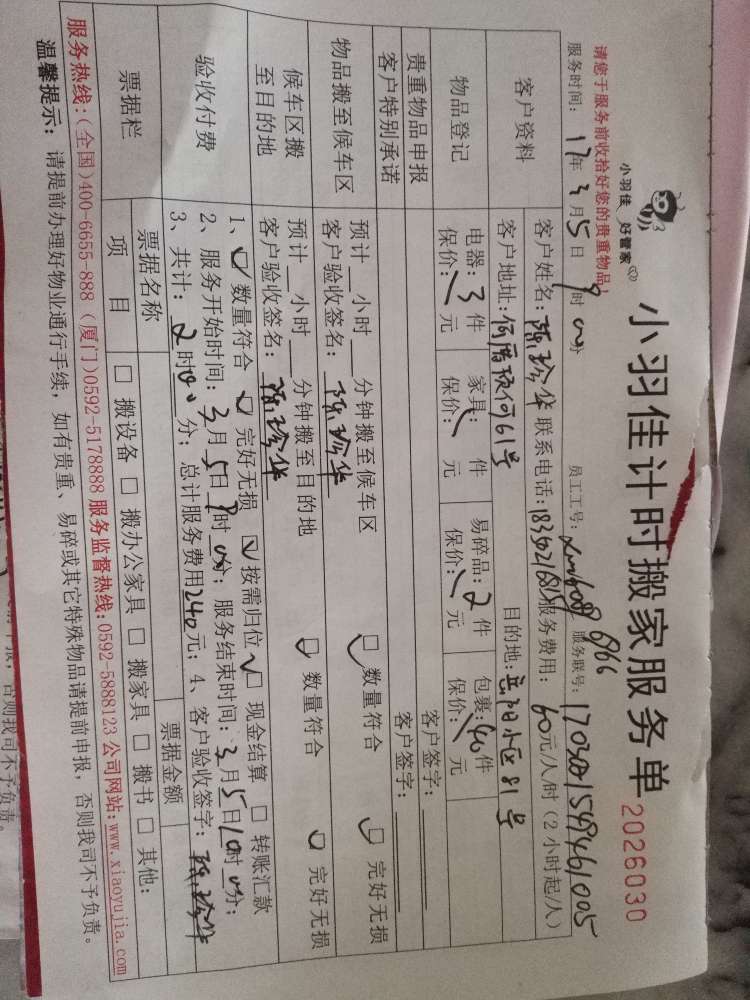 小羽佳 好管家
小羽佳计时搬家服务单 2026030
请您于服务前收拾好您的贵重物品!
员工工号: 服务联号:
服务时间: 17年3月5日9时00分
客户资料
客户姓名: 陈珍华 联系电话: 服务费用: 60元/人/时(2小时起/人)
客户地址: 61号 目的地: 小区81号
物品登记
电器: 3件 家具: 件 易碎品: 2件 包裹: 40件
保价: 元 保价: 元 保价: 元 保价: 元
贵重物品申报 客户签字:
客户特别承诺 客户签字:
物品搬至候车区
预计 小时 分钟搬至候车区 数量符合 完好无损
客户验收签名: 陈珍华
候车区搬至目的地
预计 小时 分钟搬至目的地 数量符合 完好无损
客户验收签名: 陈珍华
验收付费
1、数量符合 完好无损 按需归位 现金结算 转账汇款
2、服务开始时间: 3月5日9时00分; 服务结束时间: 3月5日10时00分;
3、共计: 2时00分; 总计服务费用240元; 4、客户验收签字: 陈珍华
票据栏
票据名称 票据金额
项目 搬设备 搬办公家具 搬家具 搬书 其他:
服务热线:(全国)400-6655-888 (厦门)0592-5178888 服务监督热线:0592-5888123 公司网站:www.xiaoyujia.com
温馨提示: 请提前办理好物业通行手续,如有贵重、易碎或其它特殊物品请提前申报,否则我司不予负责。
否则我司不予负责。